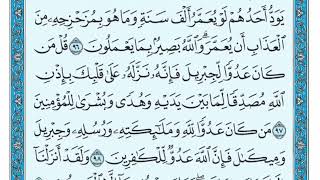 يَوَدُّ أَحَدُهُمْ لَوْ يُعَمَّرُ أَلْفَ سَنَةٍ وَمَا هُوَ بِمُزَحْزِحِهِۦ مِنَ
ٱلْعَذَابِ أَن يُعَمَّرَ ۗ وَٱللَّهُ بَصِيرٌۢ بِمَا يَعْمَلُونَ ٩٦ قُلْ مَن
كَانَ عَدُوًّا لِّجِبْرِيلَ فَإِنَّهُۥ نَزَّلَهُۥ عَلَىٰ قَلْبِكَ بِإِذْنِ
ٱللَّهِ مُصَدِّقًا لِّمَا بَيْنَ يَدَيْهِ وَهُدًى وَبُشْرَىٰ لِلْمُؤْمِنِينَ
٩٧ مَن كَانَ عَدُوًّا لِّلَّهِ وَمَلَـٰٓئِكَتِهِۦ وَرُسُلِهِۦ وَجِبْرِيلَ
وَمِيكَىٰلَ فَإِنَّ ٱللَّهَ عَدُوٌّ لِّلْكَـٰفِرِينَ ٩٨ وَلَقَدْ أَنزَلْنَآ